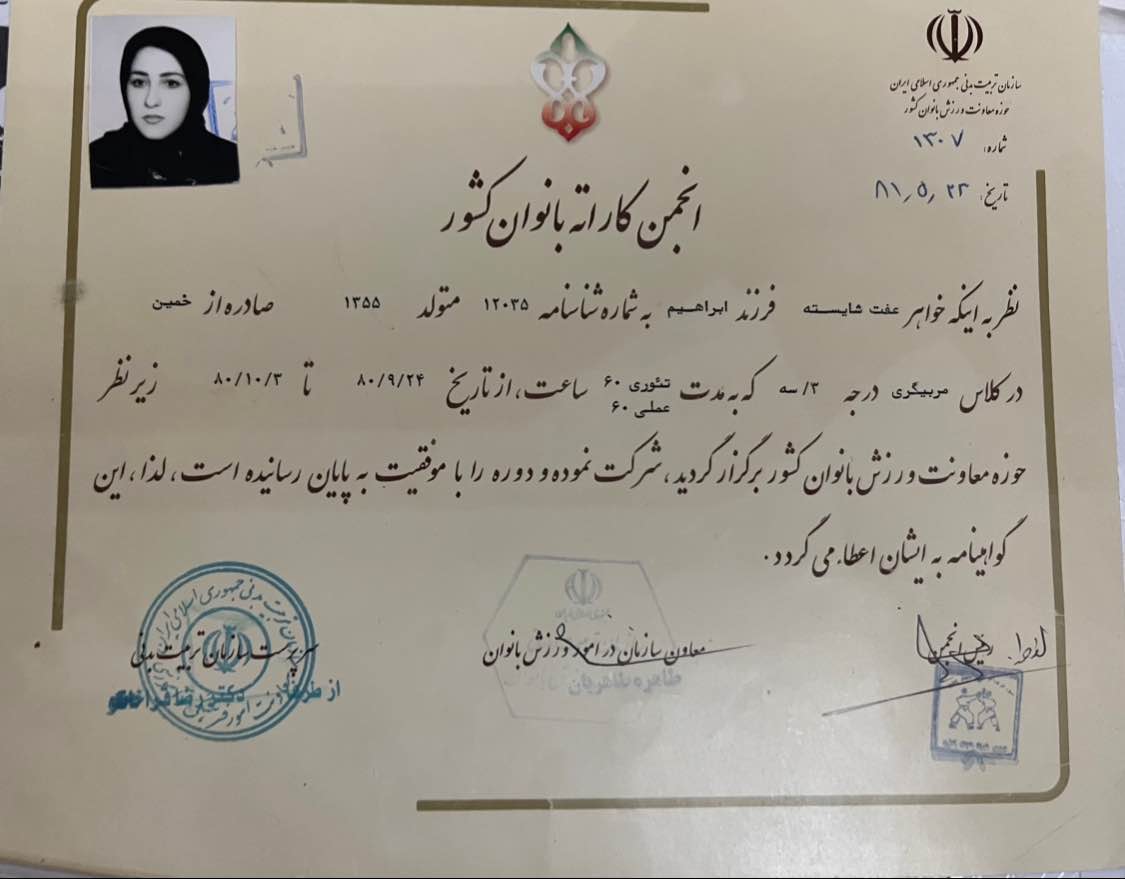 سازمان تربیت بدنی جمهوری اسلامی ایران
حوزه معاونت ورزش بانوان کشور
شماره: ۱۳۰۷
تاریخ: ۸۱٫۵٫۲۲
انجمن کاراته بانوان کشور
نظر به اینکه خواهر عفت شایسته فرزند ابراهیم به شماره شناسنامه ۱۲۰۳۵ متولد ۱۳۵۵ صادره از خمین
در کلاس مربیگری درجه ۳/ سه که به مدت تئوری ۶۰ عملی ۶۰ ساعت، از تاریخ ۸۰/۹/۲۴ تا ۸۰/۱۰/۳ زیر نظر
حوزه معاونت ورزش بانوان کشور برگزار گردید، شرکت نموده و دوره را با موفقیت به پایان رسانیده است، لذا، این
گواهینامه به ایشان اعطاء می گردد.
رئیس انجمن
معاون سازمان در امور ورزش بانوان
طاهره طاهریان
سرپرست سازمان تربیت بدنی
از طرف دکتر رضا قراخانلو